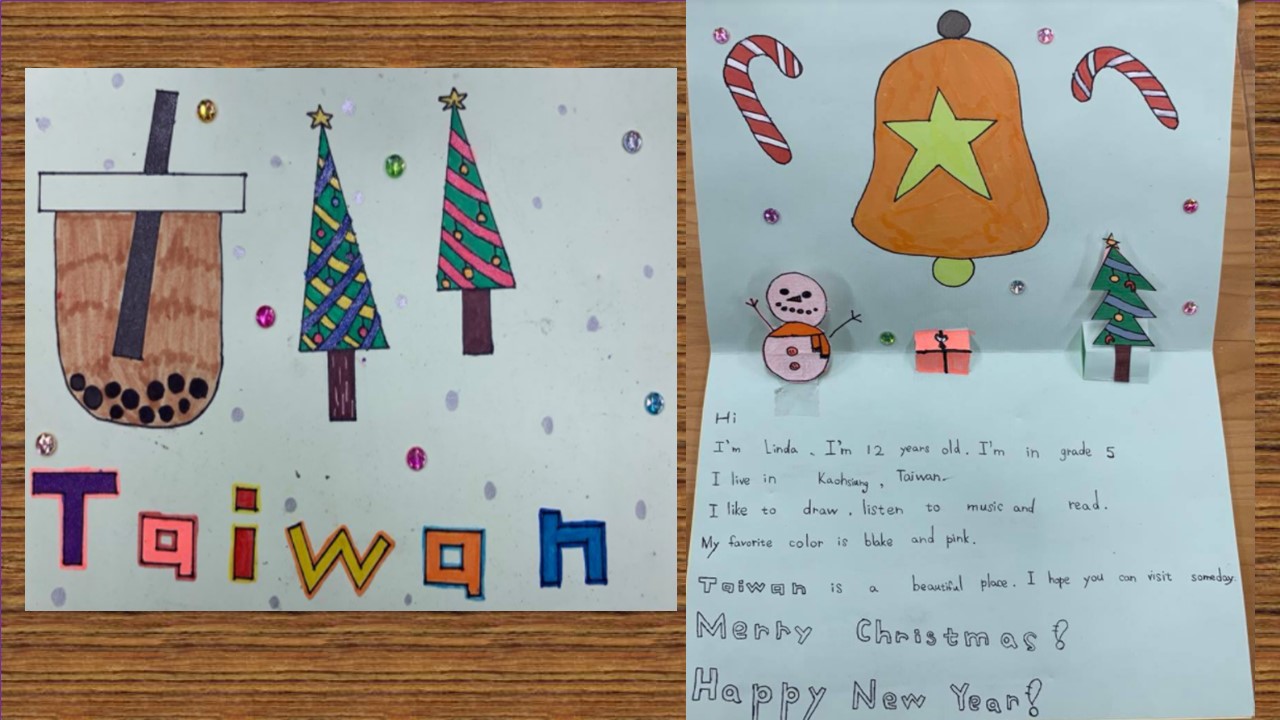 Taiwan
Hi
I'm Linda, I'm 12 years old. I'm in grade 5
I live in Kaohsiang, Taiwan.
I like to draw, listen to music and read.
My favorite color is blake and pink.
Taiwan is a beautiful place. I hope you can visit someday.
Merry Christmas!
Happy New Year!